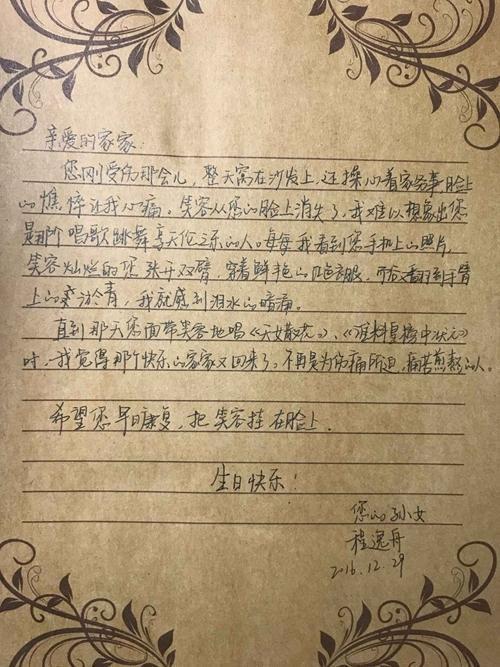 亲爱的家家:
您刚受伤那会儿,整天窝在沙发上,还操心着家务事,脸上
的憔悴让我心痛。笑容从您的脸上消失了,我难以想象出您
是那个唱歌跳舞享天伦之乐的人。每每我看到您手机上的照片,
笑容灿烂的您张开双臂,穿着鲜艳的 衣服,而 翻到手臂
上的 淤青,我就感到泪水的暗痛。
直到那天您面带笑容地唱《天女散花》、《谁料皇榜中状元》
时,我觉得那个快乐的家家又回来了。不再是为伤痛所迫,痛苦煎熬的人。
希望您早日康复,把笑容挂在脸上.
生日快乐!
您的孙女
程逸舟
2016.12.29